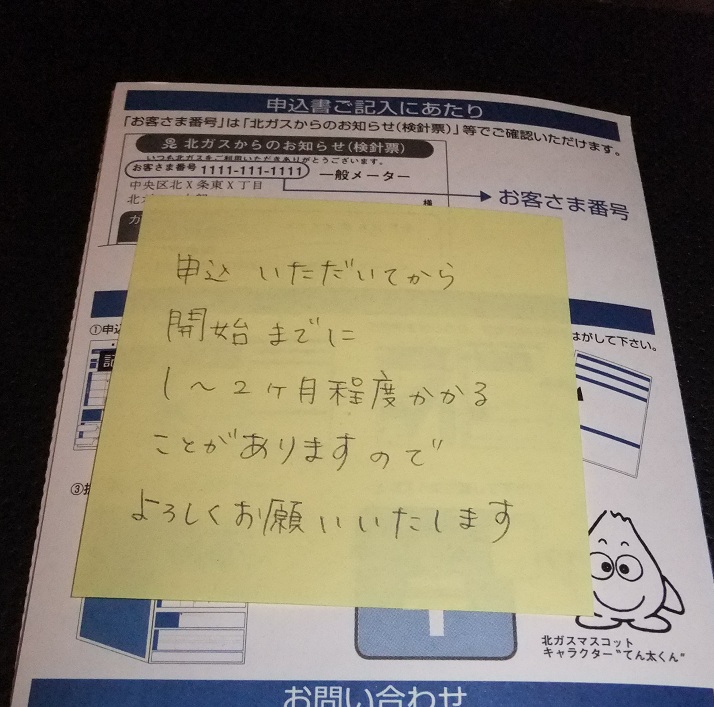 申込書ご記入にあたり
「お客さま番号」は「北ガスからのお知らせ(検針票)」等でご確認いただけます。
北ガスからのお知らせ(検針票)
いつも北ガスをご利用いただきありがとうございます。
お客さま番号 1111-111-1111 一般メーター
中央区北X条東X丁目
様
お客さま番号
申込 いただいてから
開始までに
1〜2ヶ月程度かかる
ことがありますので
よろしくお願いいたします
①申込
はがして下さい。
③
北ガスマスコット
キャラクター“てん太くん”
お問い合わせ